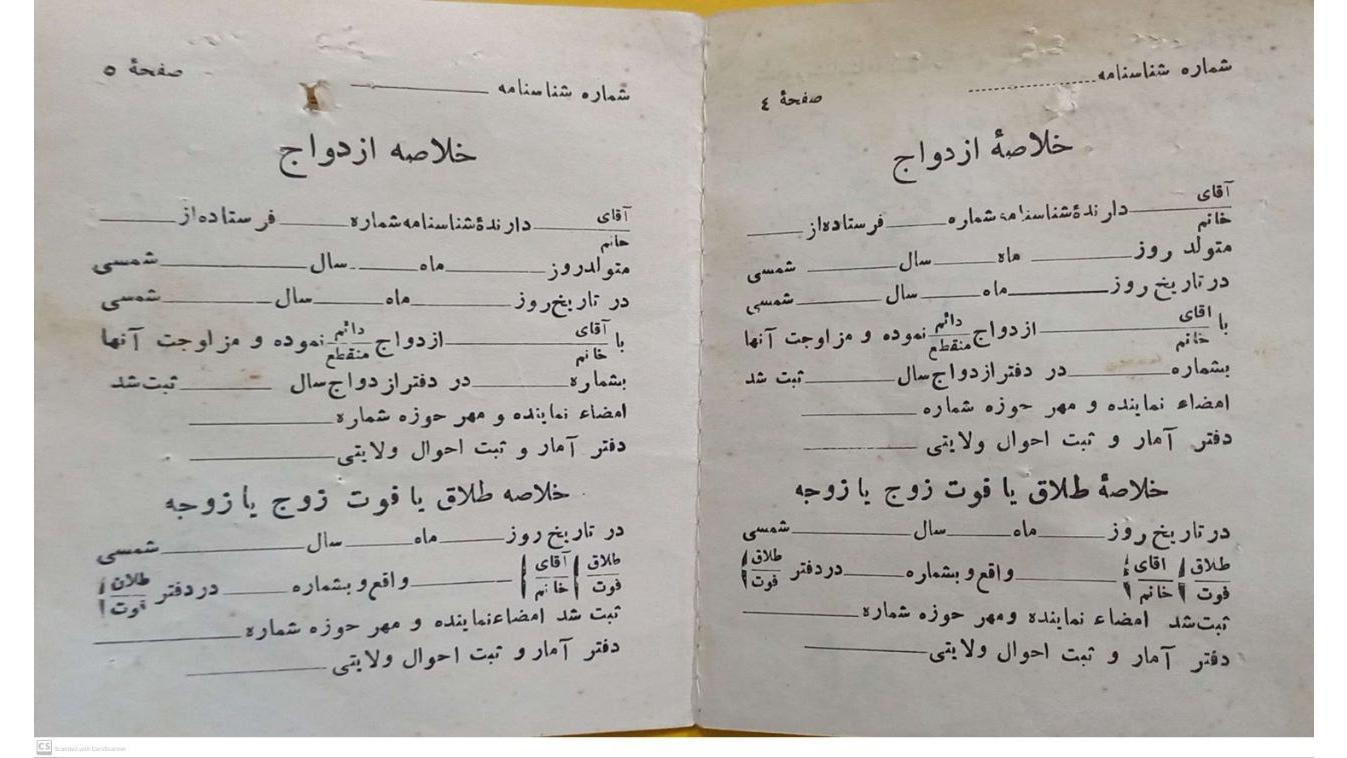 شماره شناسنامه
صفحهٔ ٤
خلاصهٔ ازدواج
آقای
خانم
دارندهٔ شناسنامه شماره ______ فرستاده از ______
متولد روز ______ ماه ______ سال ______ شمسی
در تاریخ روز ______ ماه ______ سال ______ شمسی
با آقای / خانم ______ ازدواج دائم / منقطع نموده و مزاوجت آنها
بشماره ______ در دفتر ازدواج سال ______ ثبت شد
امضاء نماینده و مهر حوزه شماره ______
دفتر آمار و ثبت احوال ولایتی ______
خلاصهٔ طلاق یا فوت زوج یا زوجه
در تاریخ روز ______ ماه ______ سال ______ شمسی
طلاق / فوت آقای / خانم ______ واقع و بشماره ______ در دفتر طلاق / فوت
ثبت شد امضاء نماینده و مهر حوزه شماره ______
دفتر آمار و ثبت احوال ولایتی ______
شماره شناسنامه ______
صفحهٔ ۵
خلاصه ازدواج
آقای
خانم
دارندهٔ شناسنامه شماره ______ فرستاده از ______
متولد روز ______ ماه ______ سال ______ شمسی
در تاریخ روز ______ ماه ______ سال ______ شمسی
با آقای / خانم ______ ازدواج دائم / منقطع نموده و مزاوجت آنها
بشماره ______ در دفتر ازدواج سال ______ ثبت شد
امضاء نماینده و مهر حوزه شماره ______
دفتر آمار و ثبت احوال ولایتی ______
خلاصه طلاق یا فوت زوج یا زوجه
در تاریخ روز ______ ماه ______ سال ______ شمسی
طلاق / فوت آقای / خانم ______ واقع و بشماره ______ در دفتر طلاق / فوت
ثبت شد امضاء نماینده و مهر حوزه شماره ______
دفتر آمار و ثبت احوال ولایتی ______
CS Scanned with CamScanner